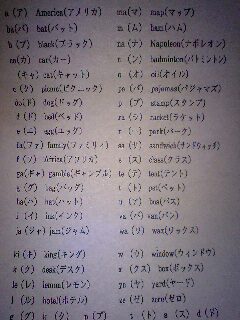 a (ア) America(アメリカ)
ba(バ) bat(バット)
b (ブ) black(ブラック)
ca(カ) car(カー)
(キャ) cat(キャット)
c (ク) picnic(ピクニック)
do(ド) dog(ドッグ)
d (ド) bed(ベッド)
e (エ) egg(エッグ)
fa(ファ) family(ファミリィ)
f (フ) Africa(アフリカ)
ga(ギャ) gamble(ギャンブル)
g (グ) bag(バッグ)
ha(ハ) hat(ハット)
i (イ) ink(インク)
ja(ジャ) jam(ジャム)
ki(キ) king(キング)
k (ク) desk(デスク)
le(レ) lemon(レモン)
l (ル) hotel(ホテル)
ma(マ) map(マップ)
m (ム) ham(ハム)
na(ナ) Napoleon(ナポレオン)
n (ン) badminton(バトミントン)
o (オ) oil(オイル)
pa(パ) pajamas(パジャマズ)
p (プ) stamp(スタンプ)
ra(ラ) racket(ラケット)
r (ー) park(パーク)
sa(サ) sandwich(サンドウィッチ)
s (ス) class(クラス)
te(テ) tent(テント)
t (ト) pet(ペット)
u (ア) bus(バス)
va(バ) van(バン)
wa(ワ) wax(ワックス)
w (ウ) window(ウィンドウ)
x (クス) box(ボックス)
ya(ヤ) yard(ヤード)
ze(ゼ) zero(ゼロ)